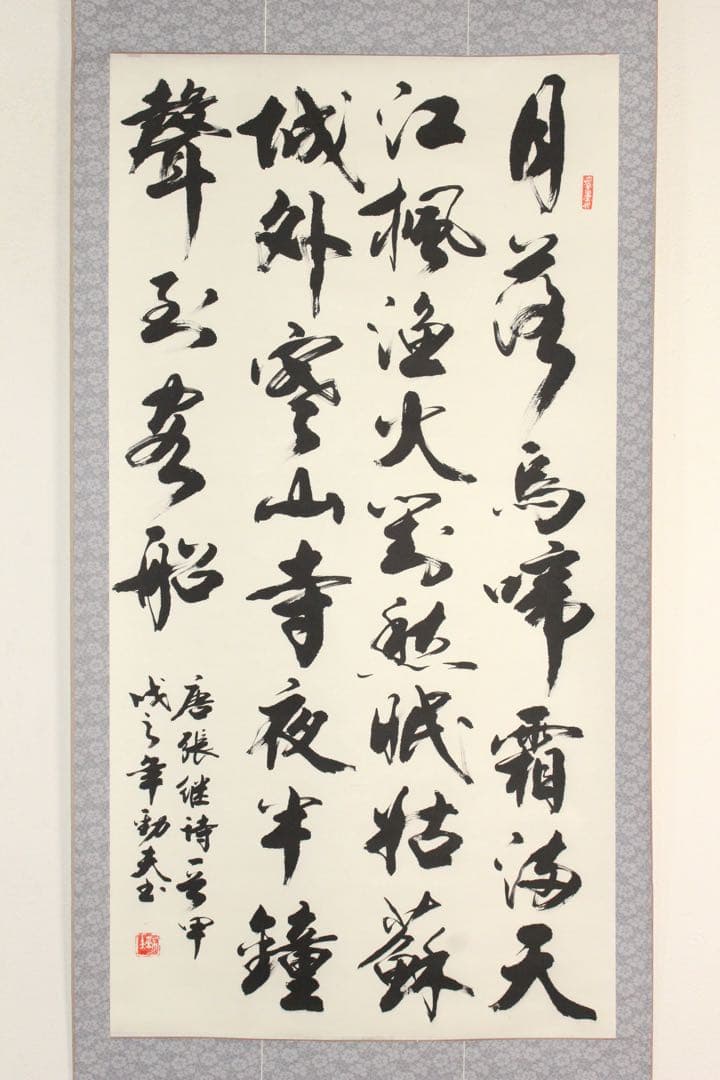 月落烏啼霜满天
江楓渔火對愁眠姑蘇
城外寒山寺夜半鐘
聲到客船
唐張继诗一首甲
戌之年勁夫书